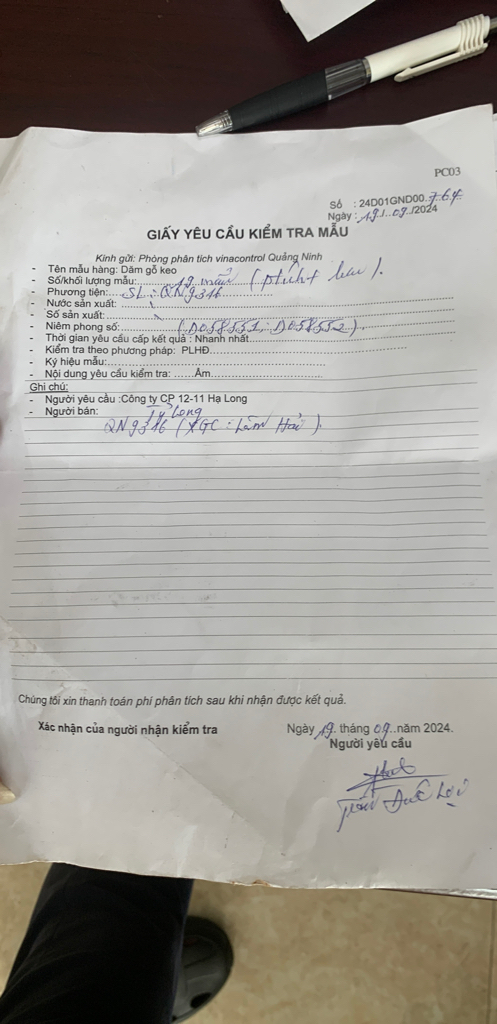 PC03
Số : 24D01GND00.764
Ngày : 19./..09./2024
GIẤY YÊU CẦU KIỂM TRA MẪU
Kính gửi: Phòng phân tích vinacontrol Quảng Ninh
- Tên mẫu hàng: Dăm gỗ keo
- Số/khối lượng mẫu: 19 mẫu
- Phương tiện: SL : QN9316
- Nước sản xuất:
- Số sản xuất:
- Niêm phong số: (D058551; D058552).
- Thời gian yêu cầu cấp kết quả : Nhanh nhất
- Kiểm tra theo phương pháp: PLHĐ
- Ký hiệu mẫu:
- Nội dung yêu cầu kiểm tra: ......Ẩm
Ghi chú:
- Người yêu cầu :Công ty CP 12-11 Hạ Long
- Người bán: Long
QN9316 (XGC : Lâm Hải).
Chúng tôi xin thanh toán phí phân tích sau khi nhận được kết quả.
Xác nhận của người nhận kiểm tra
Ngày 19. tháng 09..năm 2024.
Người yêu cầu
Đức Lợi